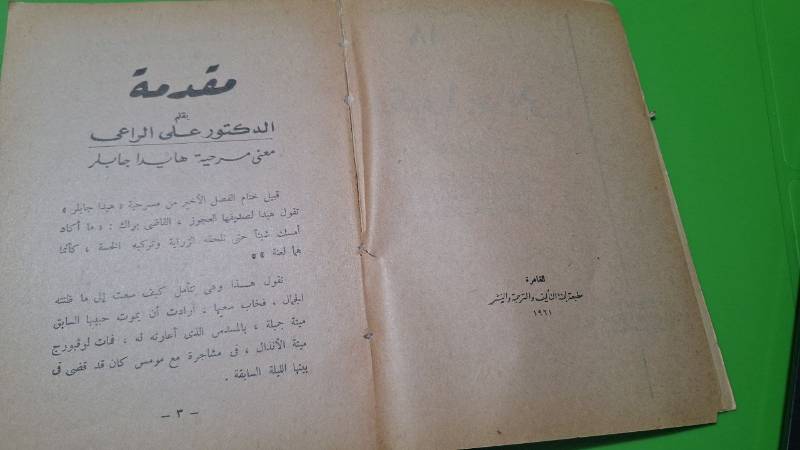 القاهرة
مطبعة لجنة التأليف والترجمة والنشر
١٩٦١
مقدمة
بقلم
الدكتور على الراعى
معنى مسرحية هايدا جابلر
قبيل ختام الفصل الأخير من مسرحية « هيدا جابلر »
تقول هيدا لصديقها العجوز ، القاضى براك : « ما أكاد
أمسك شيئاً حتى تلحقه الزراية وتركبه الخسة ، كأنما
هما لعنة »
تقول هـذا وهى تتأمل كيف سعت إلى ما ظنته
الجمال ، فخاب سعيها . أرادت أن يموت حبيبها السابق
ميتة جميلة ، بالمسدس الذى أعارته له ، فمات لوفبورج
ميتة الأنذال ، فى مشاجرة مع مومس كان قد قضى فى
بيتها الليلة السابقة .
— ٣ —